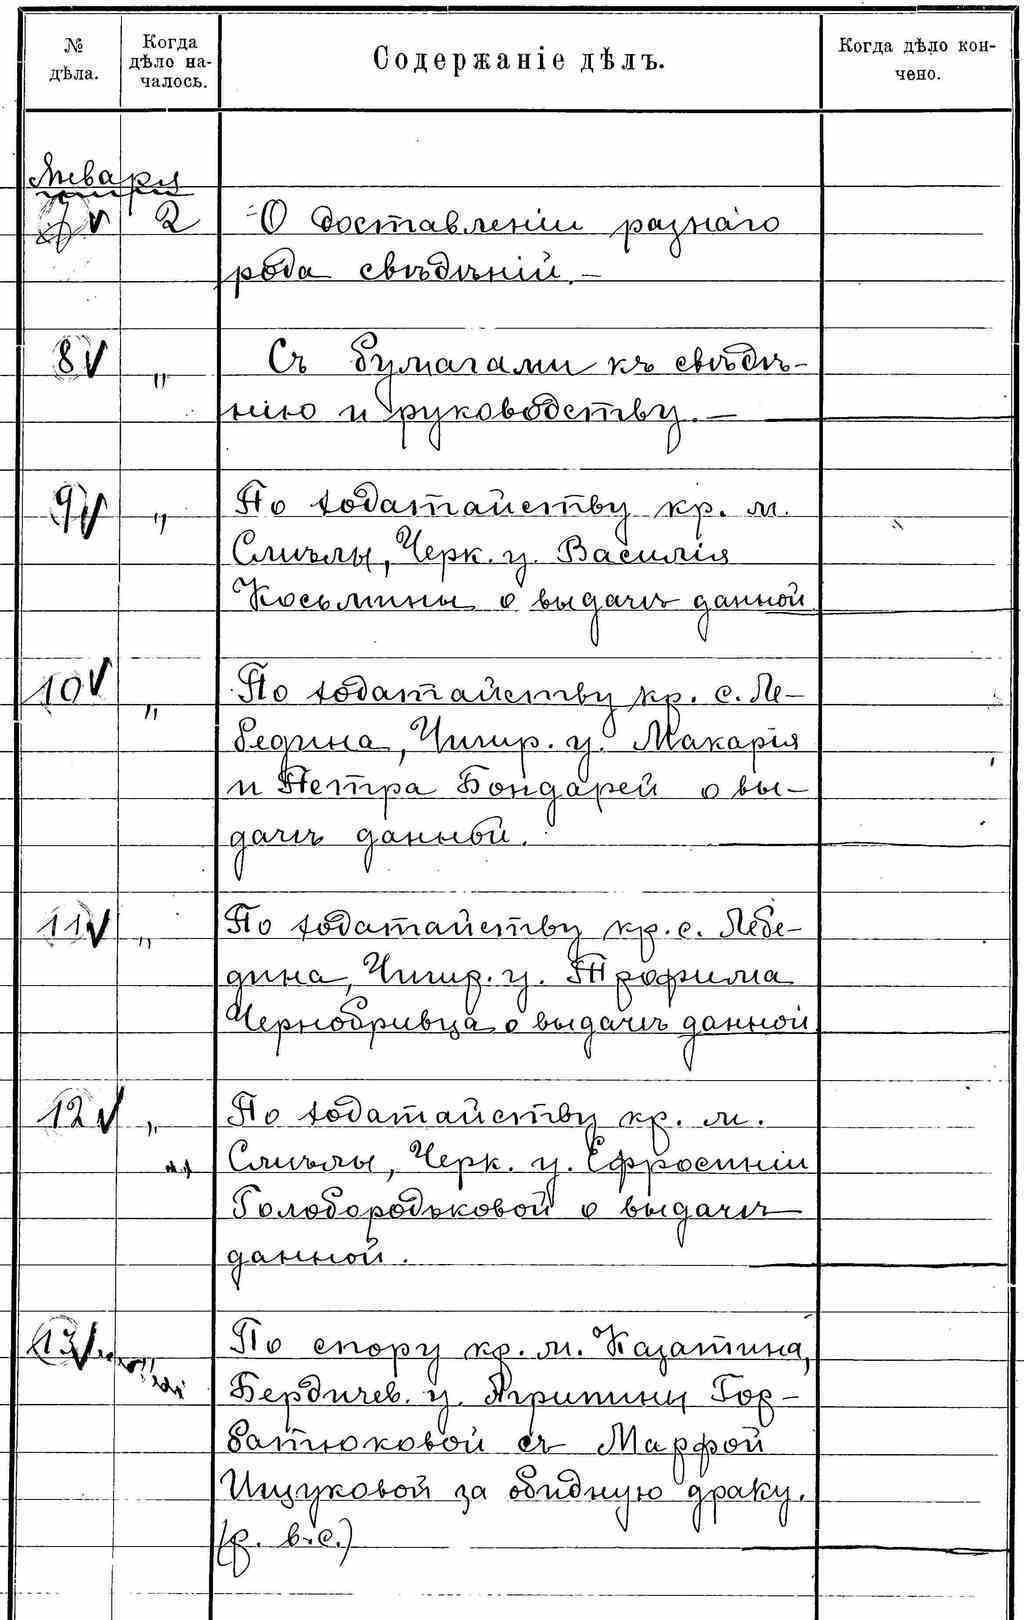 № дѣла.
Когда дѣло на-
чалось.
Содержаніе дѣлъ.
Когда дѣло кон-
чено.
Января
7 2 О доставленіи разнаго
рода свѣдѣній. —
8 " Съ бумагами къ свѣдѣ-
нію и руководству. —
9 " По ходатайству кр. м.
Смѣлы, Черк. у. Василія
Косьмины о выдачѣ данной
10 " По ходатайству кр. с. Ле-
бедина, Чигир. у. Макарія
и Петра Бондарей о вы-
дачѣ данной.
11 " По ходатайству кр. с. Лебе-
дина, Чигир. у. Трофима
Чернобривца о выдачѣ данной
12 " По ходатайству кр. м.
Смѣлы, Черк. у. Ефросиніи
Голобородьковой о выдачѣ
данной.
13 " По спору кр. м. Казатина,
Бердичев. у. Агрипины Гор-
батюковой съ Марфой
Ищуковой за обидную драку.
(р. в. с.)